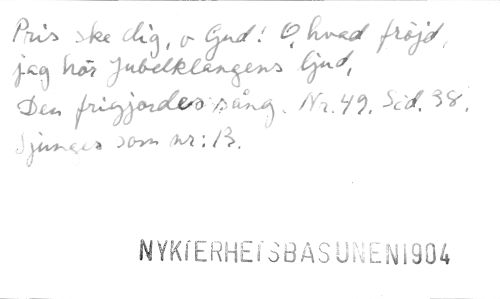 Pris ske dig, o Gud! O, hvad fröjd,
jag hör Jubelklangens ljud,
Den frigjordes sång. Nr. 49. Sid. 38.
Sjunges som nr: 13.
NYKTERHETSBASUNEN 1904